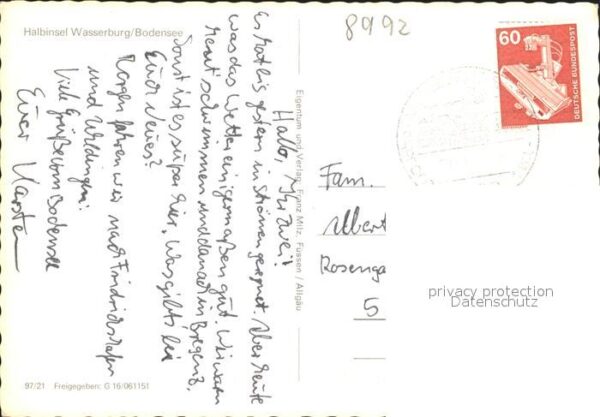 Halbinsel Wasserburg/Bodensee
8992
60
DEUTSCHE BUNDESPOST
Hallo, Ihr zwei!
Es hat bis gestern in Strömen geregnet. Aber heute
war das Wetter einigermaßen gut. Wir waren
heut schwimmen und danach in Bregenz,
Sonst ist es super hier. Was gibt's bei
Euch Neues?
Morgen fahren wir nach Friedrichshafen
und Uhldingen.
Viele Grüße vom Bodensee
Euer Karsten
Eigentum und Verlag Franz Milz, Füssen / Allgäu
Fam.
Albert
Rosenga
5
privacy protection
Datenschutz
97/21 Freigegeben: G 16/061151